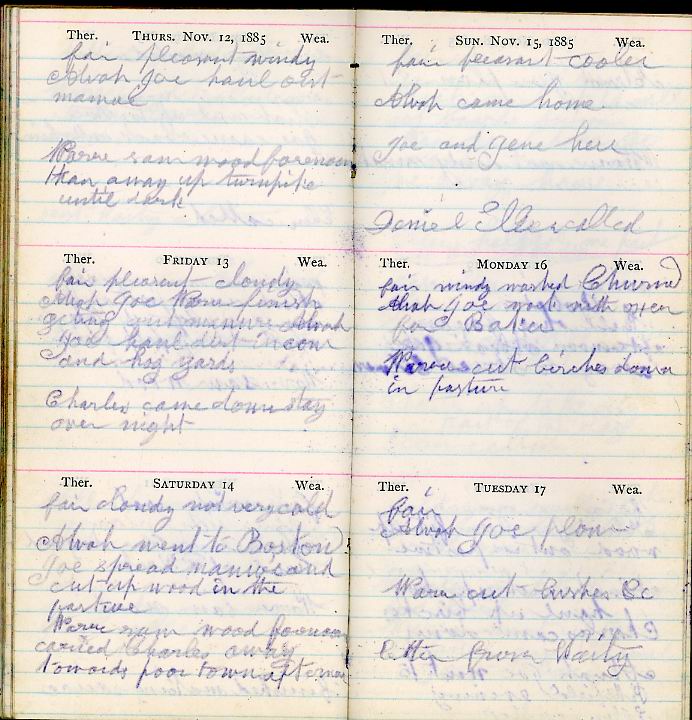 Ther. THURS. NOV. 12, 1885 Wea.
fair pleasant windy
Alvah Joe haul out
manure
Warre sawn wood forenoon
Hran away up turnpike
until dark
Ther. FRIDAY 13 Wea.
fair pleasant cloudy
Alvah Joe Warre finish
geting out manure Alvah
Joe haul dirt in cow
and hog yards
Charles came down stay
over night
Ther. SATURDAY 14 Wea.
fair cloudy not very cold
Alvah went to Boston
Joe spread manure and
cut up wood in the
pasture
Warre sawn wood forenoon
carried Charles away
towards poor town afternoon
Ther. SUN. NOV. 15, 1885 Wea.
fair pleasant cooler
Alvah came home
Joe and Gene here
called
Ther. MONDAY 16 Wea.
fair windy washed Churned
Alvah Joe work with oxen
for Baker
Warre cut birches down
in pasture
Ther. TUESDAY 17 Wea.
fair
Alvah Joe plow
Warre cut bushes &c
letter from